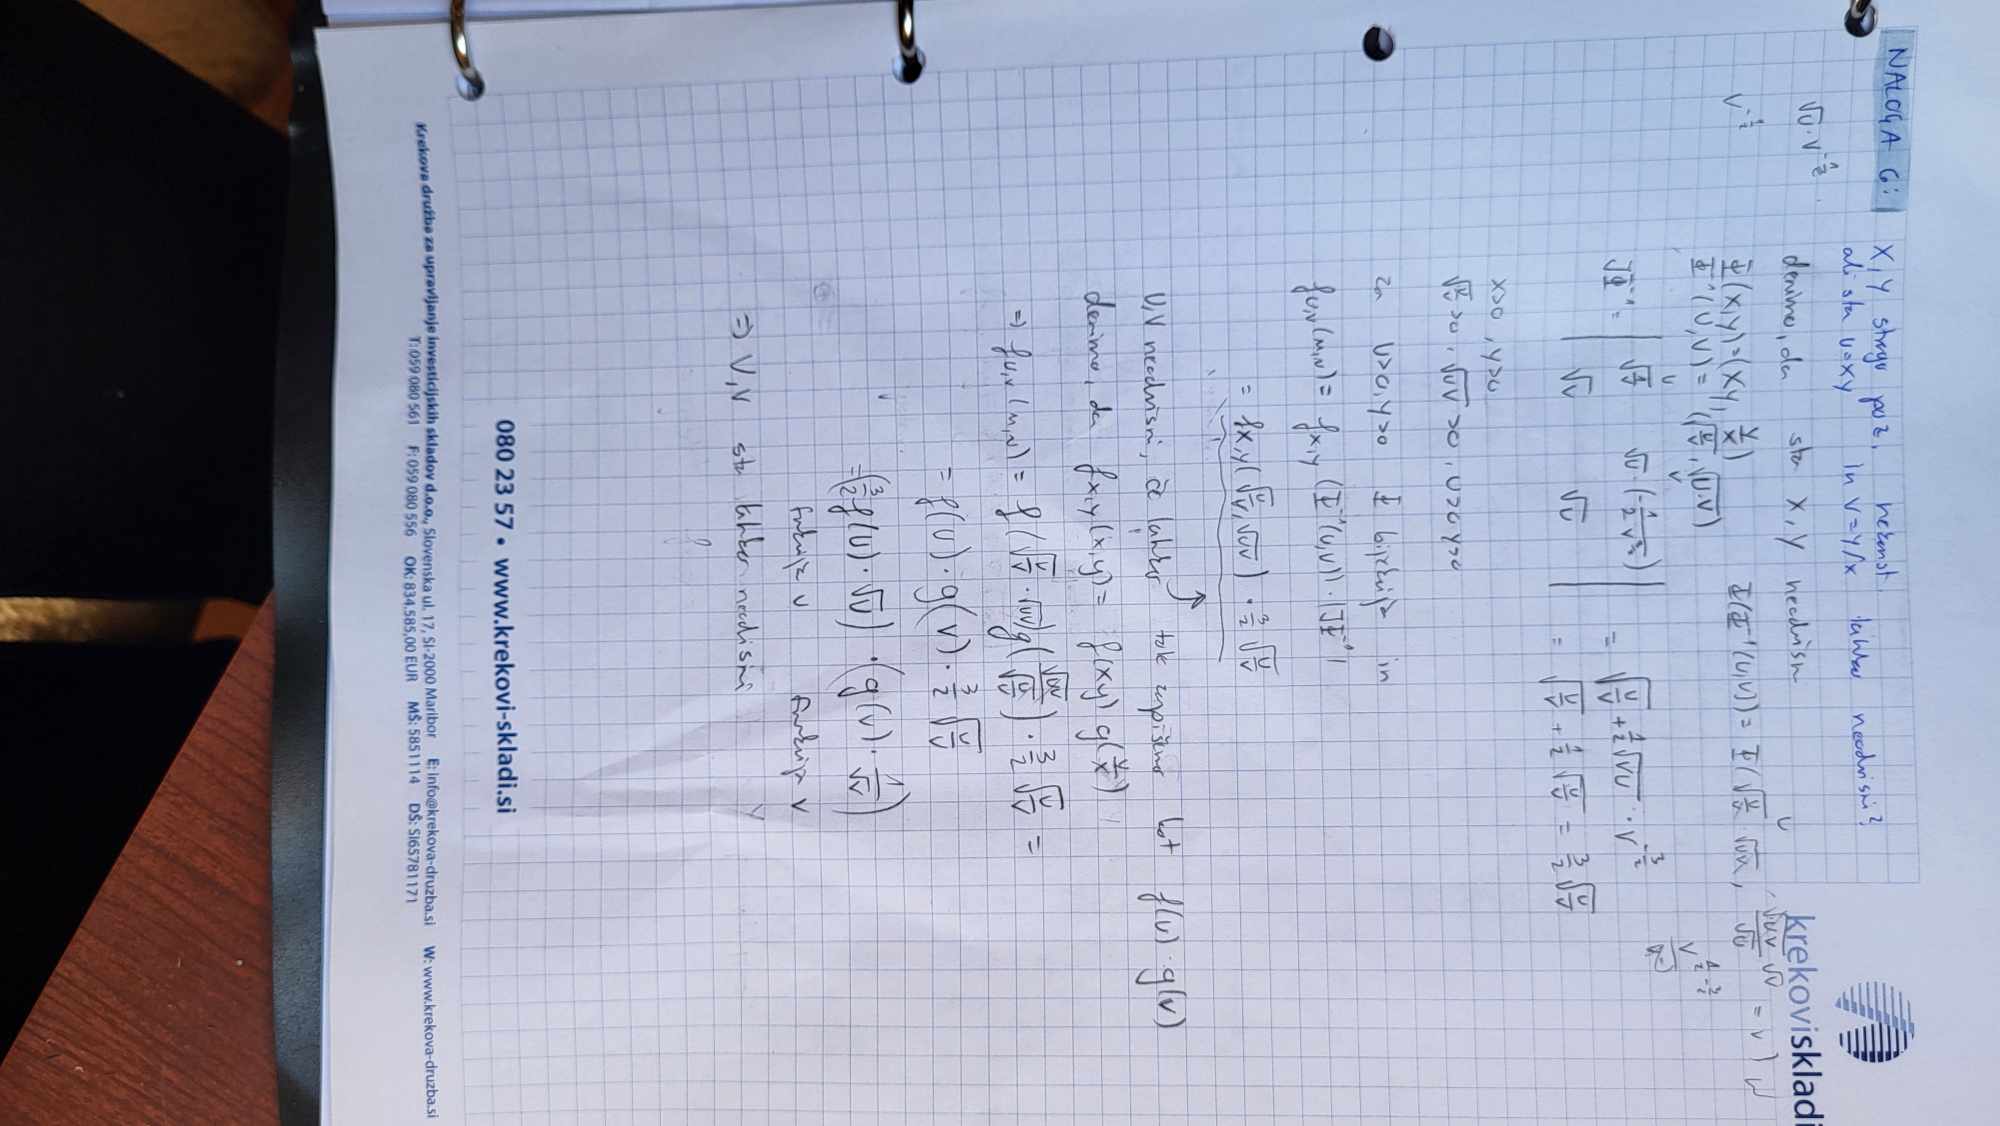 NALOGA 6:
X, Y strogo poz., nekonst.
ali sta U=XY in V=Y/X lahko neodvisni?
krekoviskladi
√U · V^(-1/2)
V^(-1/2)
denimo, da sta X, Y neodvisni
Φ(X,Y)=(XY, Y/X)
Φ⁻¹(U,V) = (√(U/V), √(U·V))
JΦ⁻¹ = | √(U/V) √U · (-1/2 V^(3/2)) |
| √V √U |
= √(U/V) + 1/2 √(VU) · V^(-3/2)
= √(U/V) + 1/2 √(U/V) = 3/2 √(U/V)
x>0, y>0
√(U/V)>0, √(UV)>0, U>0 V>0
za U>0, V>0 Φ bijekcija in
f_U,V(u,v) = f_X,Y (Φ⁻¹(U,V)) · |JΦ⁻¹|
= f_X,Y(√(U/V), √(UV)) · 3/2 √(U/V)
U,V neodvisni, če lahko tole zapišemo kot f(U) · g(V)
denimo, da f_X,Y(x,y) = f(xy) g(y/x)
⇒ f_U,V(u,v) = f(√(U/V) · √(UV)) g(√(UV)/√(U/V)) · 3/2 √(U/V) =
= f(U) · g(V) · 3/2 √(U/V)
= (3/2 f(U) · √U) · (g(V) · 1/√V)
funkcija U funkcija V
⇒ U,V sta lahko neodvisni
080 23 57 • www.krekovi-skladi.si
Krekova družba za upravljanje investicijskih skladov d.o.o., Slovenska ul. 17, SI-2000 Maribor E: info@krekova-druzba.si W: www.krekova-druzba.si
T: 059 080 561 F: 059 080 556 OK: 834.585,00 EUR MŠ: 5851114 DŠ: SI65781171